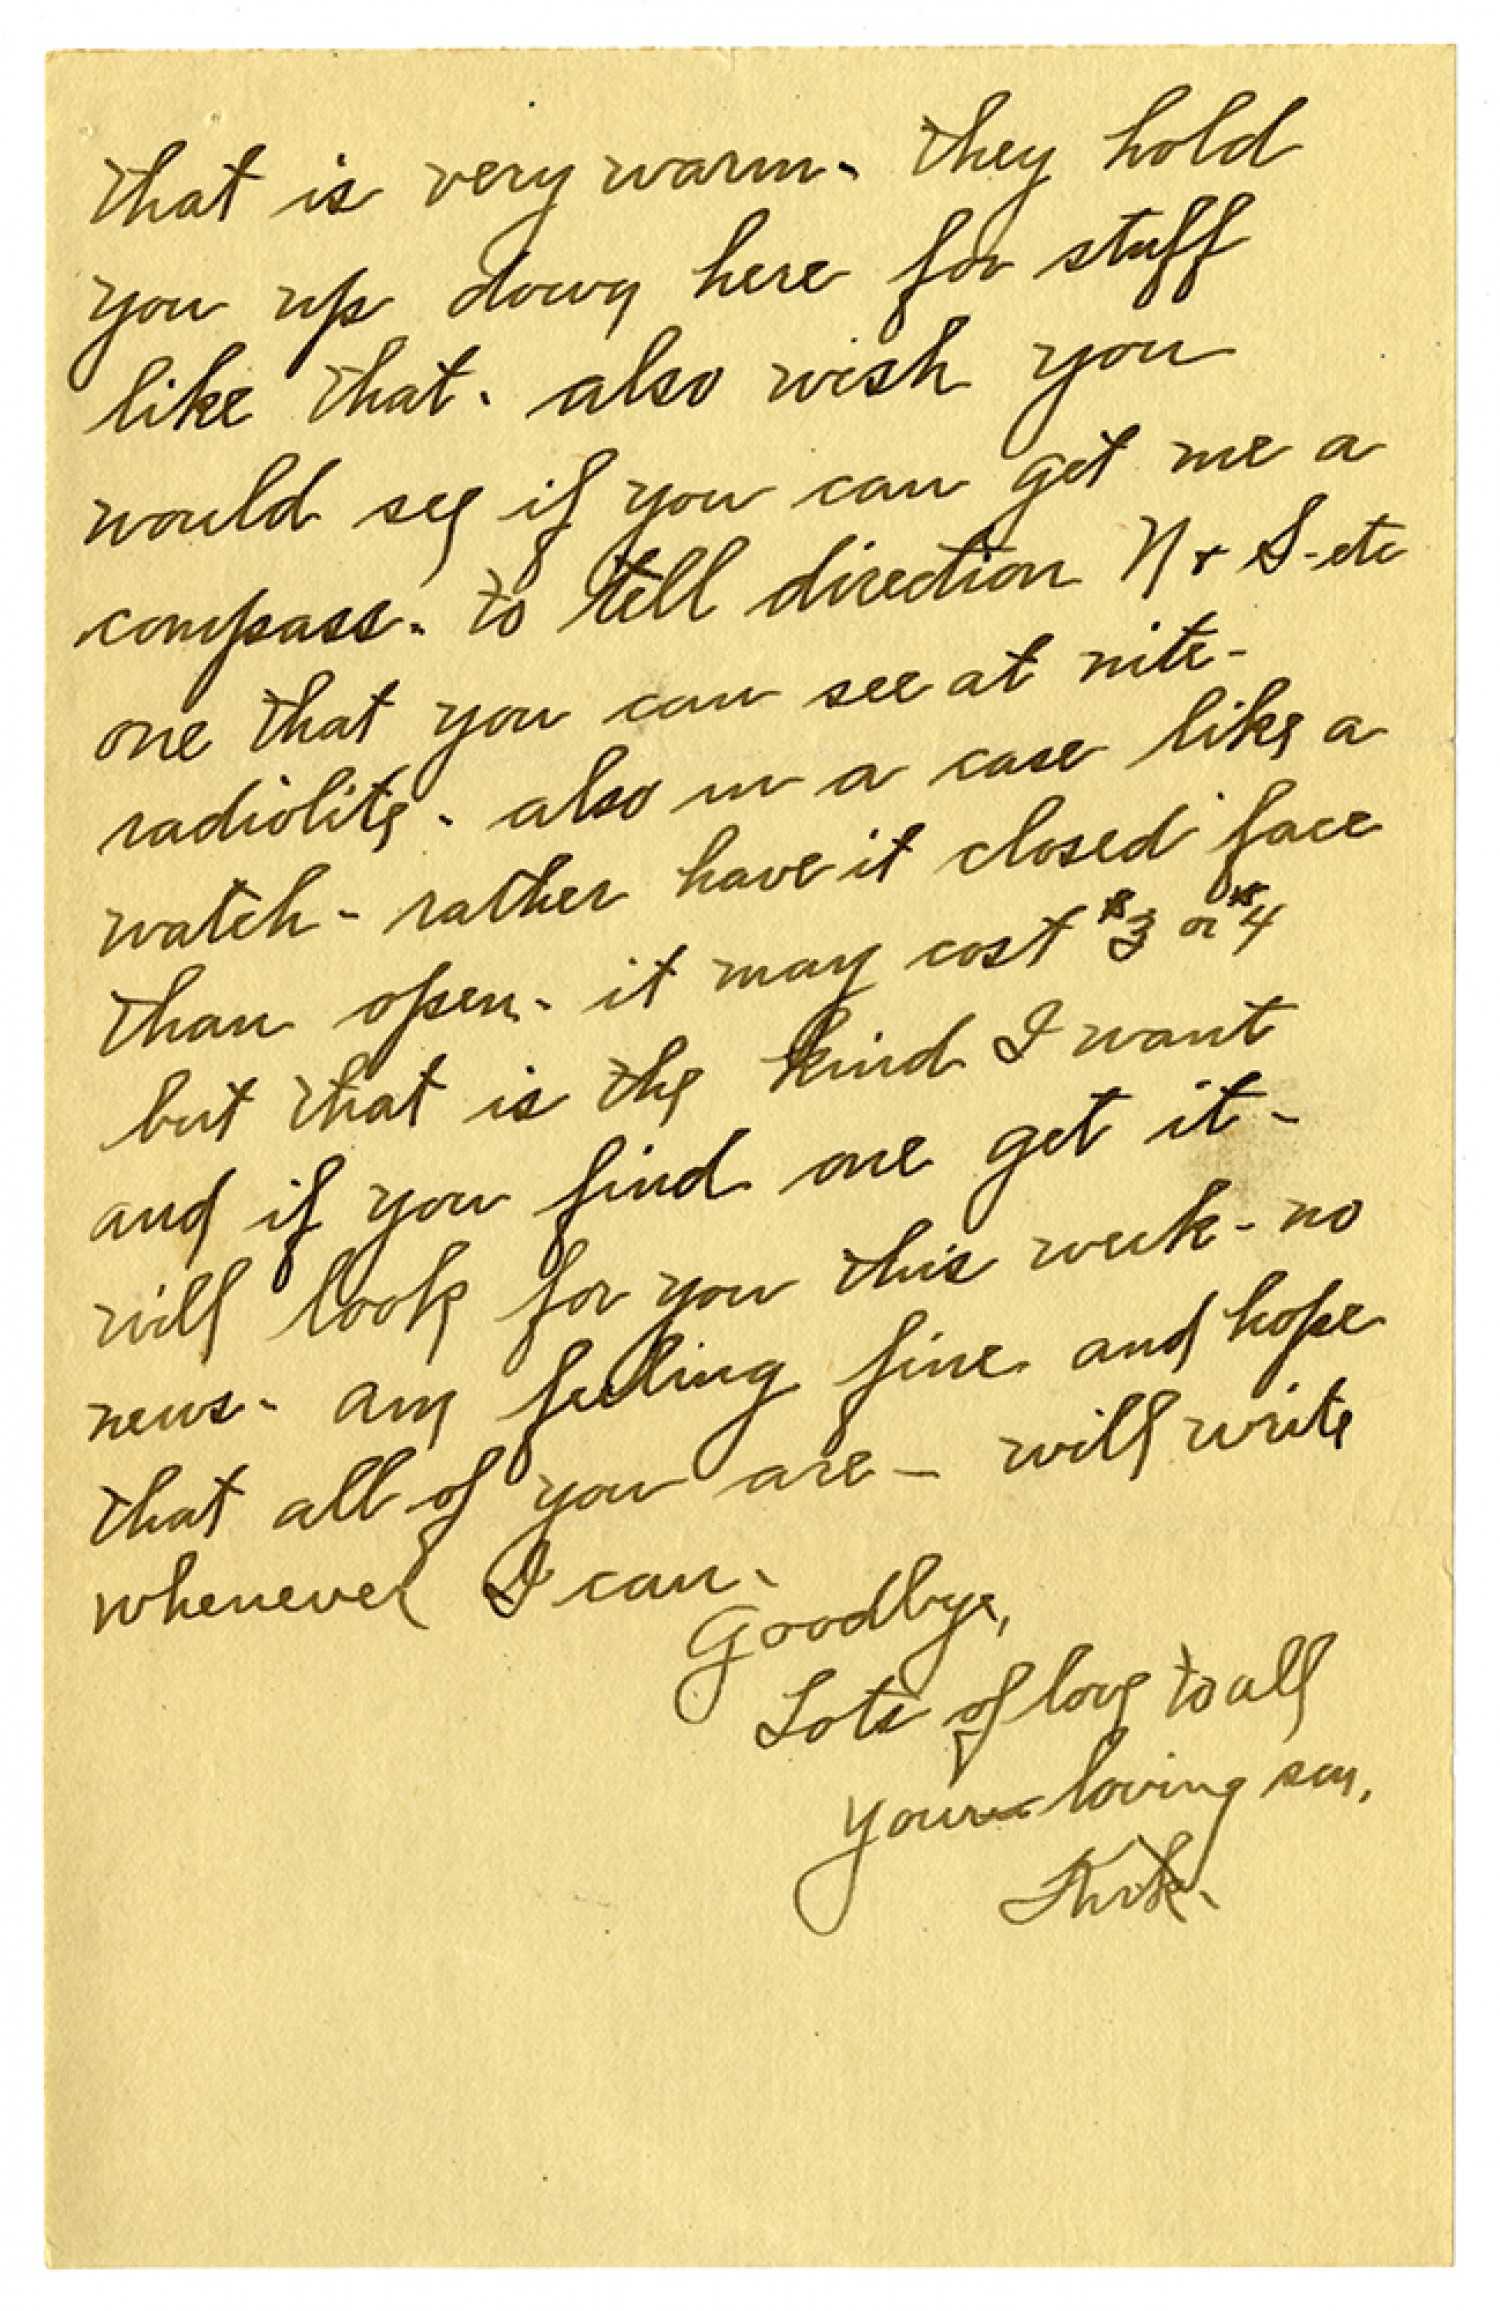 that is very warm. they hold
you up down here for stuff
like that. also wish you
would see if you can get me a
compass. to tell direction N + S-etc
one that you can see at nite-
radiolite. also in a case like a
watch - rather have it closed face
than open. it may cost $3 or $4
but that is the kind I want
and if you find one get it -
will look for you this week - no
news. am feeling fine and hope
that all of you are - will write
whenever I can.
Goodbye,
Lots of love to all
Your loving son,